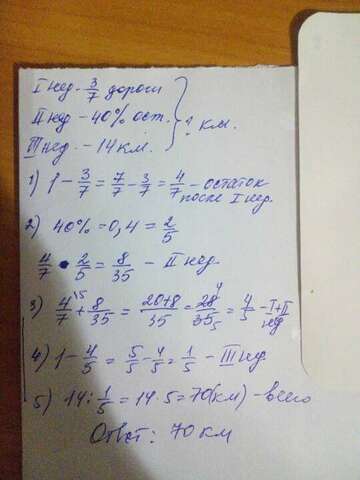 I нед - 3/7 дороги
II нед - 40% ост. } ? км.
III нед. - 14 км.
1) 1 - 3/7 = 7/7 - 3/7 = 4/7 - остаток после I нед.
2) 40% = 0,4 = 2/5
4/7 • 2/5 = 8/35 - II нед.
3) 4/7 \5 + 8/35 = 20+8/35 = 28/35 4/5 = 4/5 - I + II нед
4) 1 - 4/5 = 5/5 - 4/5 = 1/5 - III нед.
5) 14 : 1/5 = 14 · 5 = 70 (км) - всего
Ответ: 70 км